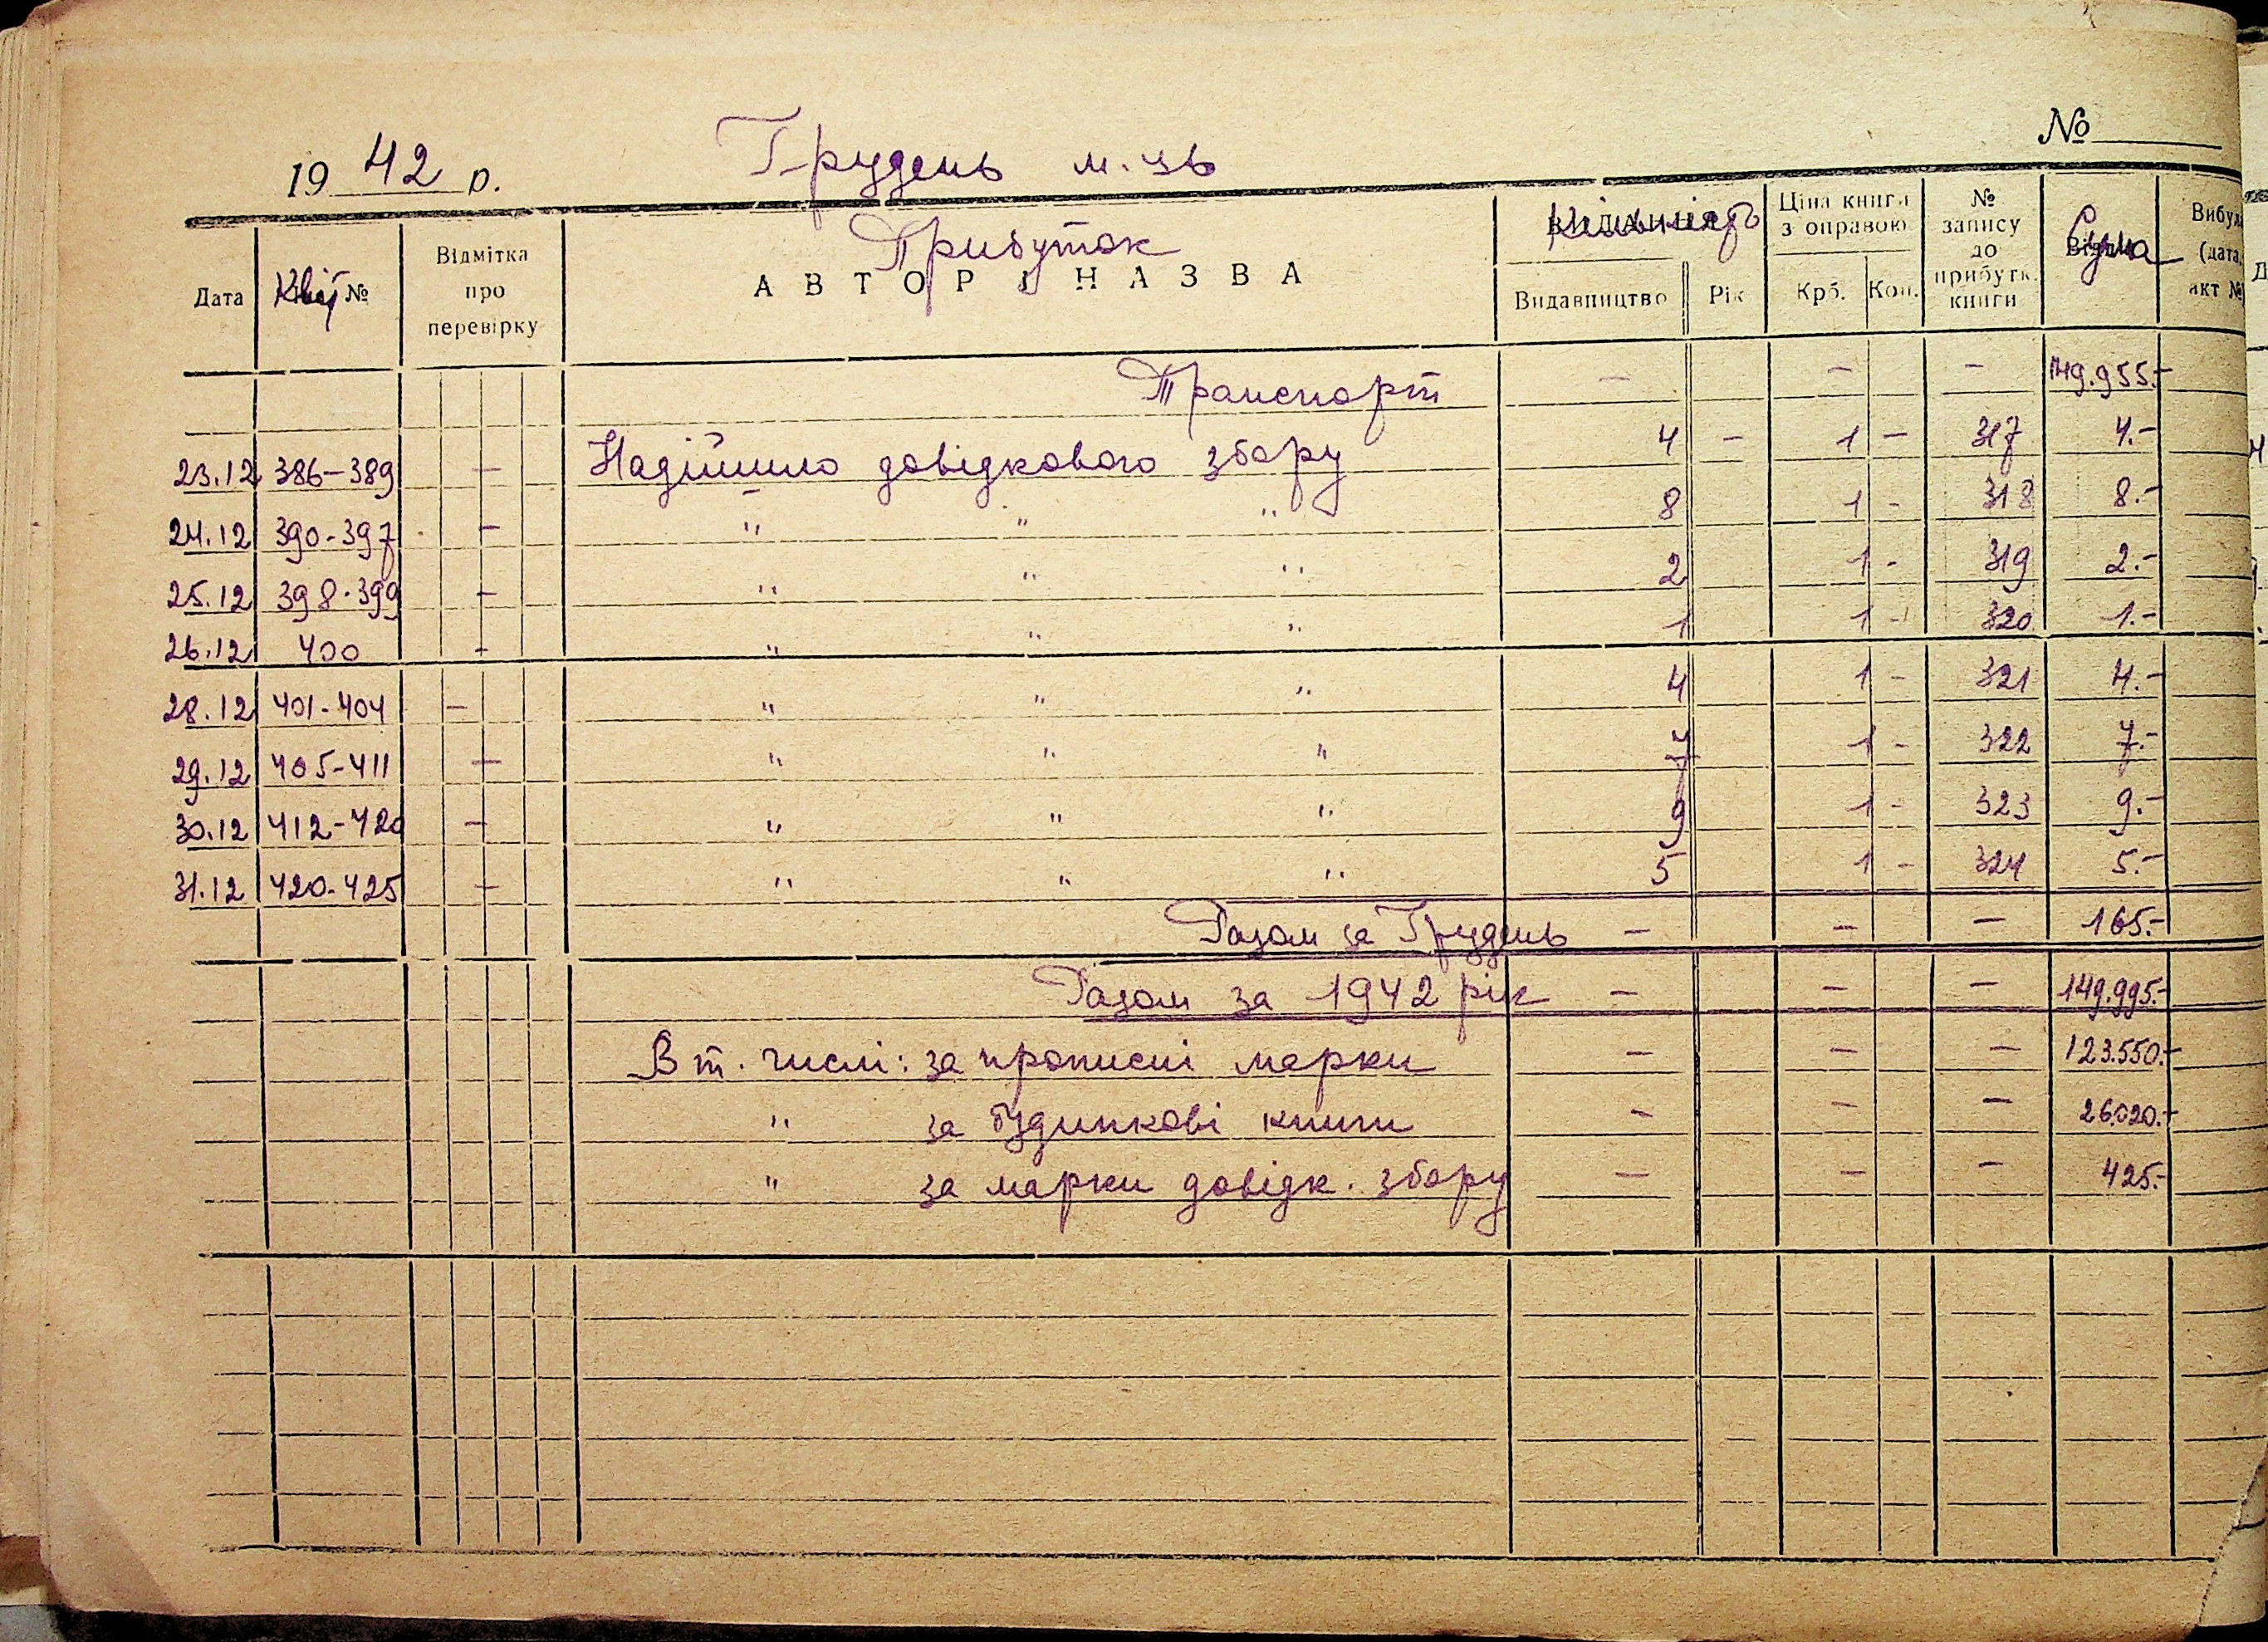 1942 р. Грудень м-ць №
Дата Квит № Відмітка про перевірку Прибуток АВТОР І НАЗВА Кількість Видавництво Рік Ціна книги з оправою Крб. Коп. № запису до прибутк. книги Сума Вибул (дата, акт №
Транспорт — — — 149.955.-
23.12 386-389 — Надійшло довідкового збору 4 — 1 — 317 4.-
24.12 390-397 — " " " 8 1 - 318 8.-
25.12 398-399 — " " " 2 1 - 319 2.-
26.12 400 - " " " 1 1 - 320 1.-
28.12 401-404 — " " " 4 1 - 321 4.-
29.12 405-411 — " " " 7 1 - 322 7.-
30.12 412-420 — " " " 9 1 - 323 9.-
31.12 420-425 — " " " 5 1 - 324 5.-
Разом за Грудень — — — 165.-
Разом за 1942 рік — — — 149.995.-
В т. числі: за прописні марки — — — 123.550.-
" за будинкові книги — — — 26.020.-
" за марки довідк. збору — — — 425.-